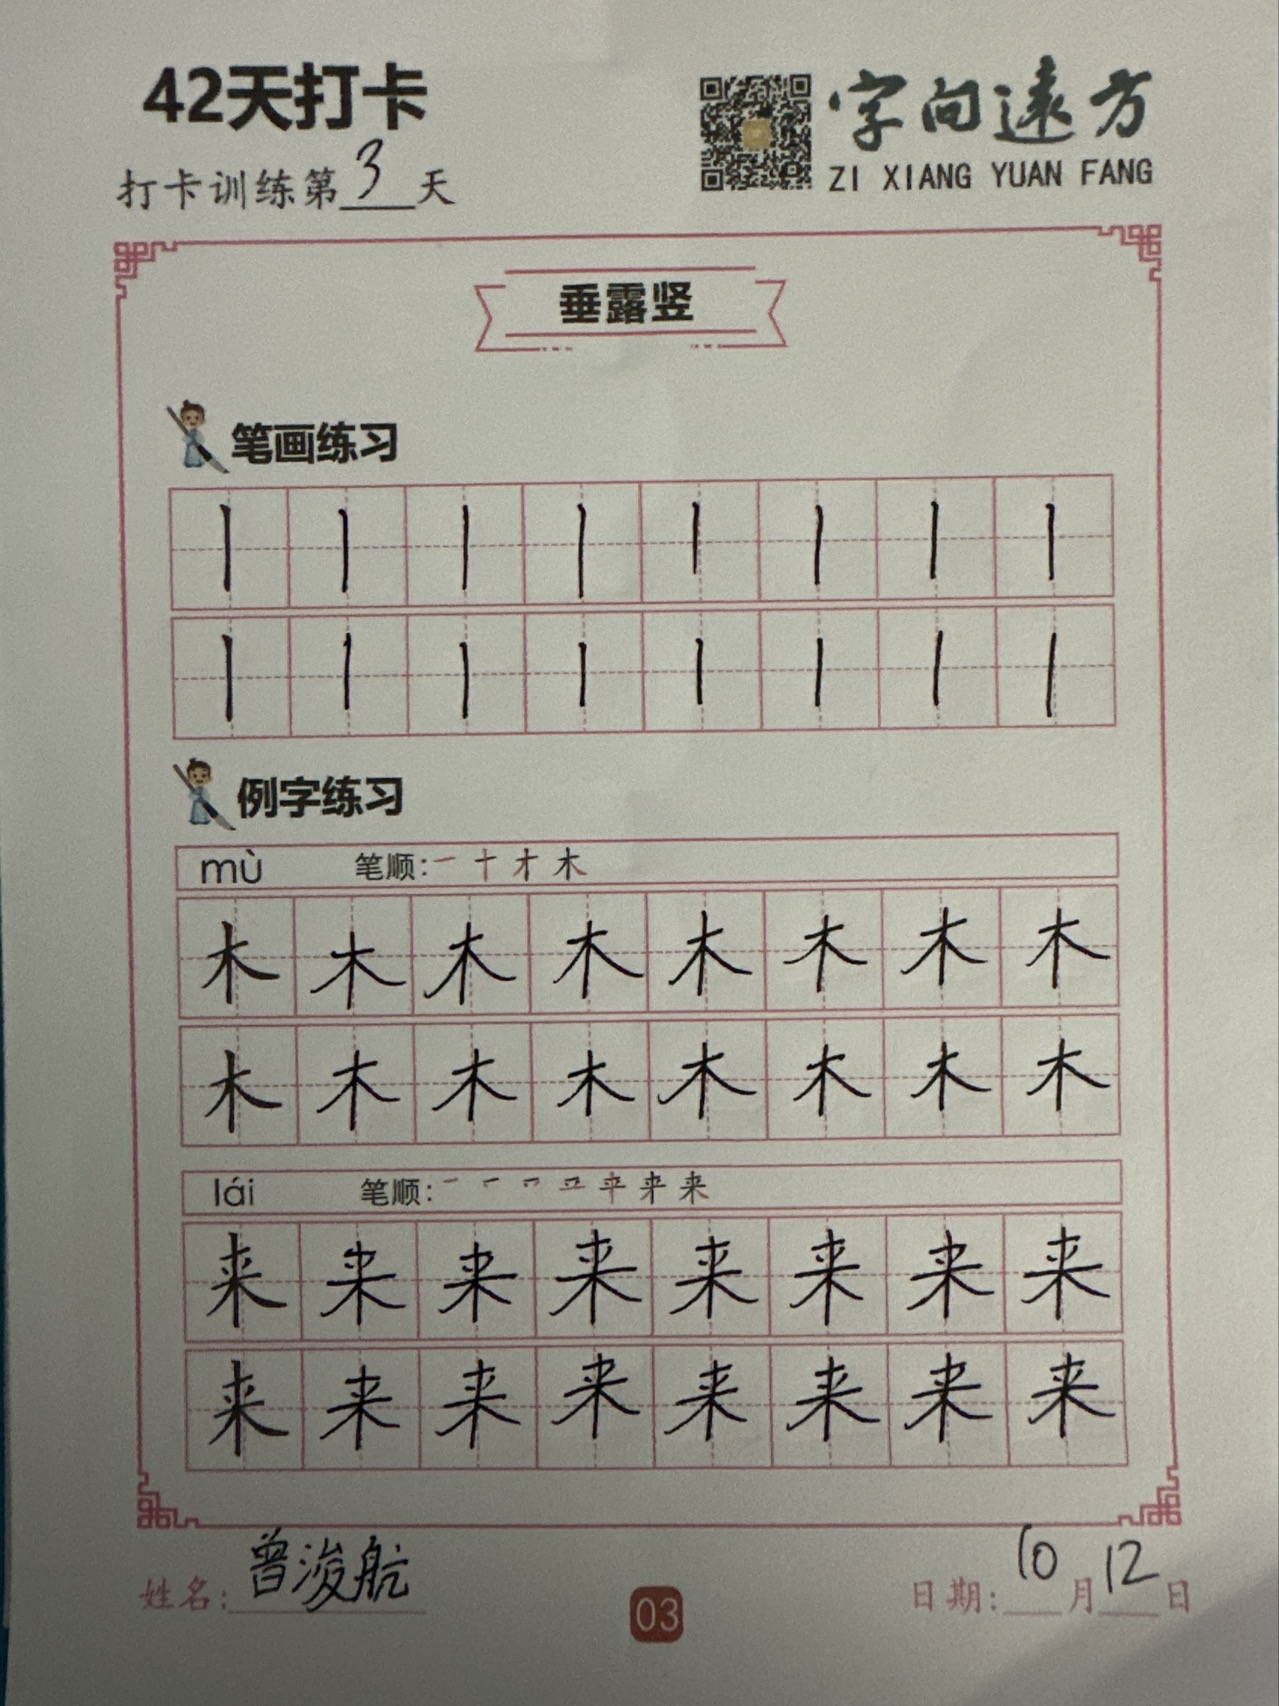 42天打卡
字向遠方
ZI XIANG YUAN FANG
打卡训练第3天
垂露竖
笔画练习
丨丨丨丨丨丨丨丨
丨丨丨丨丨丨丨丨
例字练习
mù 笔顺:一 十 才 木
木木木木木木木木
木木木木木木木木
lái 笔顺:
来来来来来来来来
来来来来来来来来
姓名:曾浚航
03
日期:10月12日